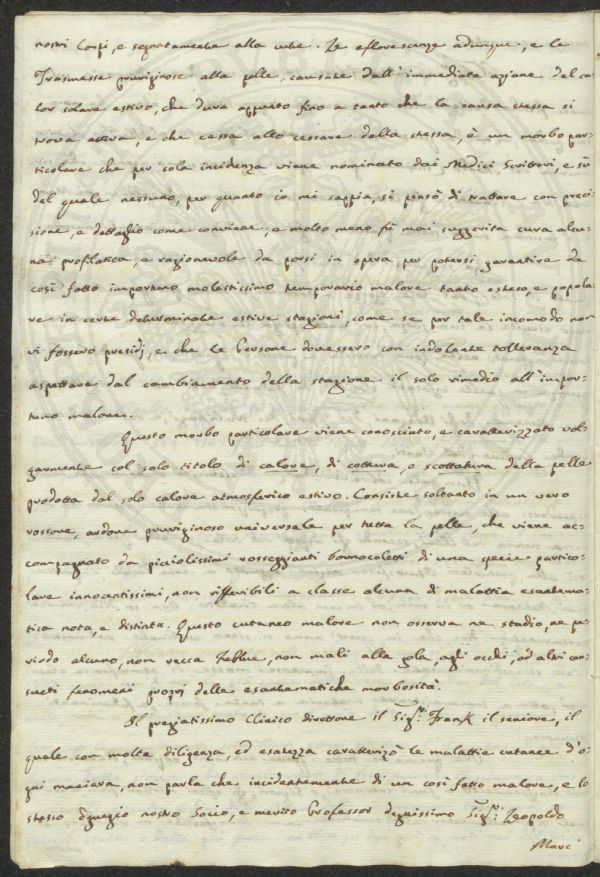 nostri Corpi, e segnatamente alla cute. Le eflorescenze adunque, e le
Trasmesse pruriginose alla pelle, causate dall' immediata azione del ca=
lor solare estivo, che dura appunto fino a tanto che la causa stessa si
trova attiva, e che cessa allo cessare della stessa, è un morbo par=
ticolare che per sola incidenza viene nominato dai Medici Scrittori, e sù
del quale nessuno, per quanto io mi sappia, si pensò di trattare con preci=
sione, e dettaglio come conviene, e molto meno fù mai suggerita cura alcu=
na profilatica, e ragionevole da porsi in opera, per potersi garantire da
così fatto importuno molestissimo temporario malore tanto esteso, e popola=
re in certe determinate estive stagioni, come se per tale incomodo non
vi fossero presidj, e che le Persone dovessero con indolente tolleranza
aspettare dal cambiamento della stagione il solo rimedio all' impor=
tuno malore.
Questo morbo particolare viene conosciuto, e caratterizzato vol=
garmente col solo titolo di calore, di cottura, o scottatura della pelle
prodotta dal solo calore atmosferico estivo. Consiste soltanto in un vero
rossore, ardore pruriginoso universale per tutta la pelle, che viene ac=
compagnato da picciolissimi rosseggianti bormocoletti di una specie partico=
lare innocentissimi, non rifferibili a classe alcuna di malattia esantema=
tica nota, e distinta. Questo cutaneo malore non osserva ne stadio, ne pe=
riodo alcuno, non recca febbre, non mali alla gola, agli occhi, od altri con=
sueti fenomeni proprj delle esantematiche morbosità.
Il pregiatissimo Clinico direttore il Sigr. Frank il seniore, il
quale con molta diligenza, ed esatezza caratterizò le malattie cutanee d'o=
gni maniera, non parla che incidentemente di un così fatto malore, e lo
stesso Egregio nostro Socio, e merito Professor degnissimo Sigr. Leopoldo